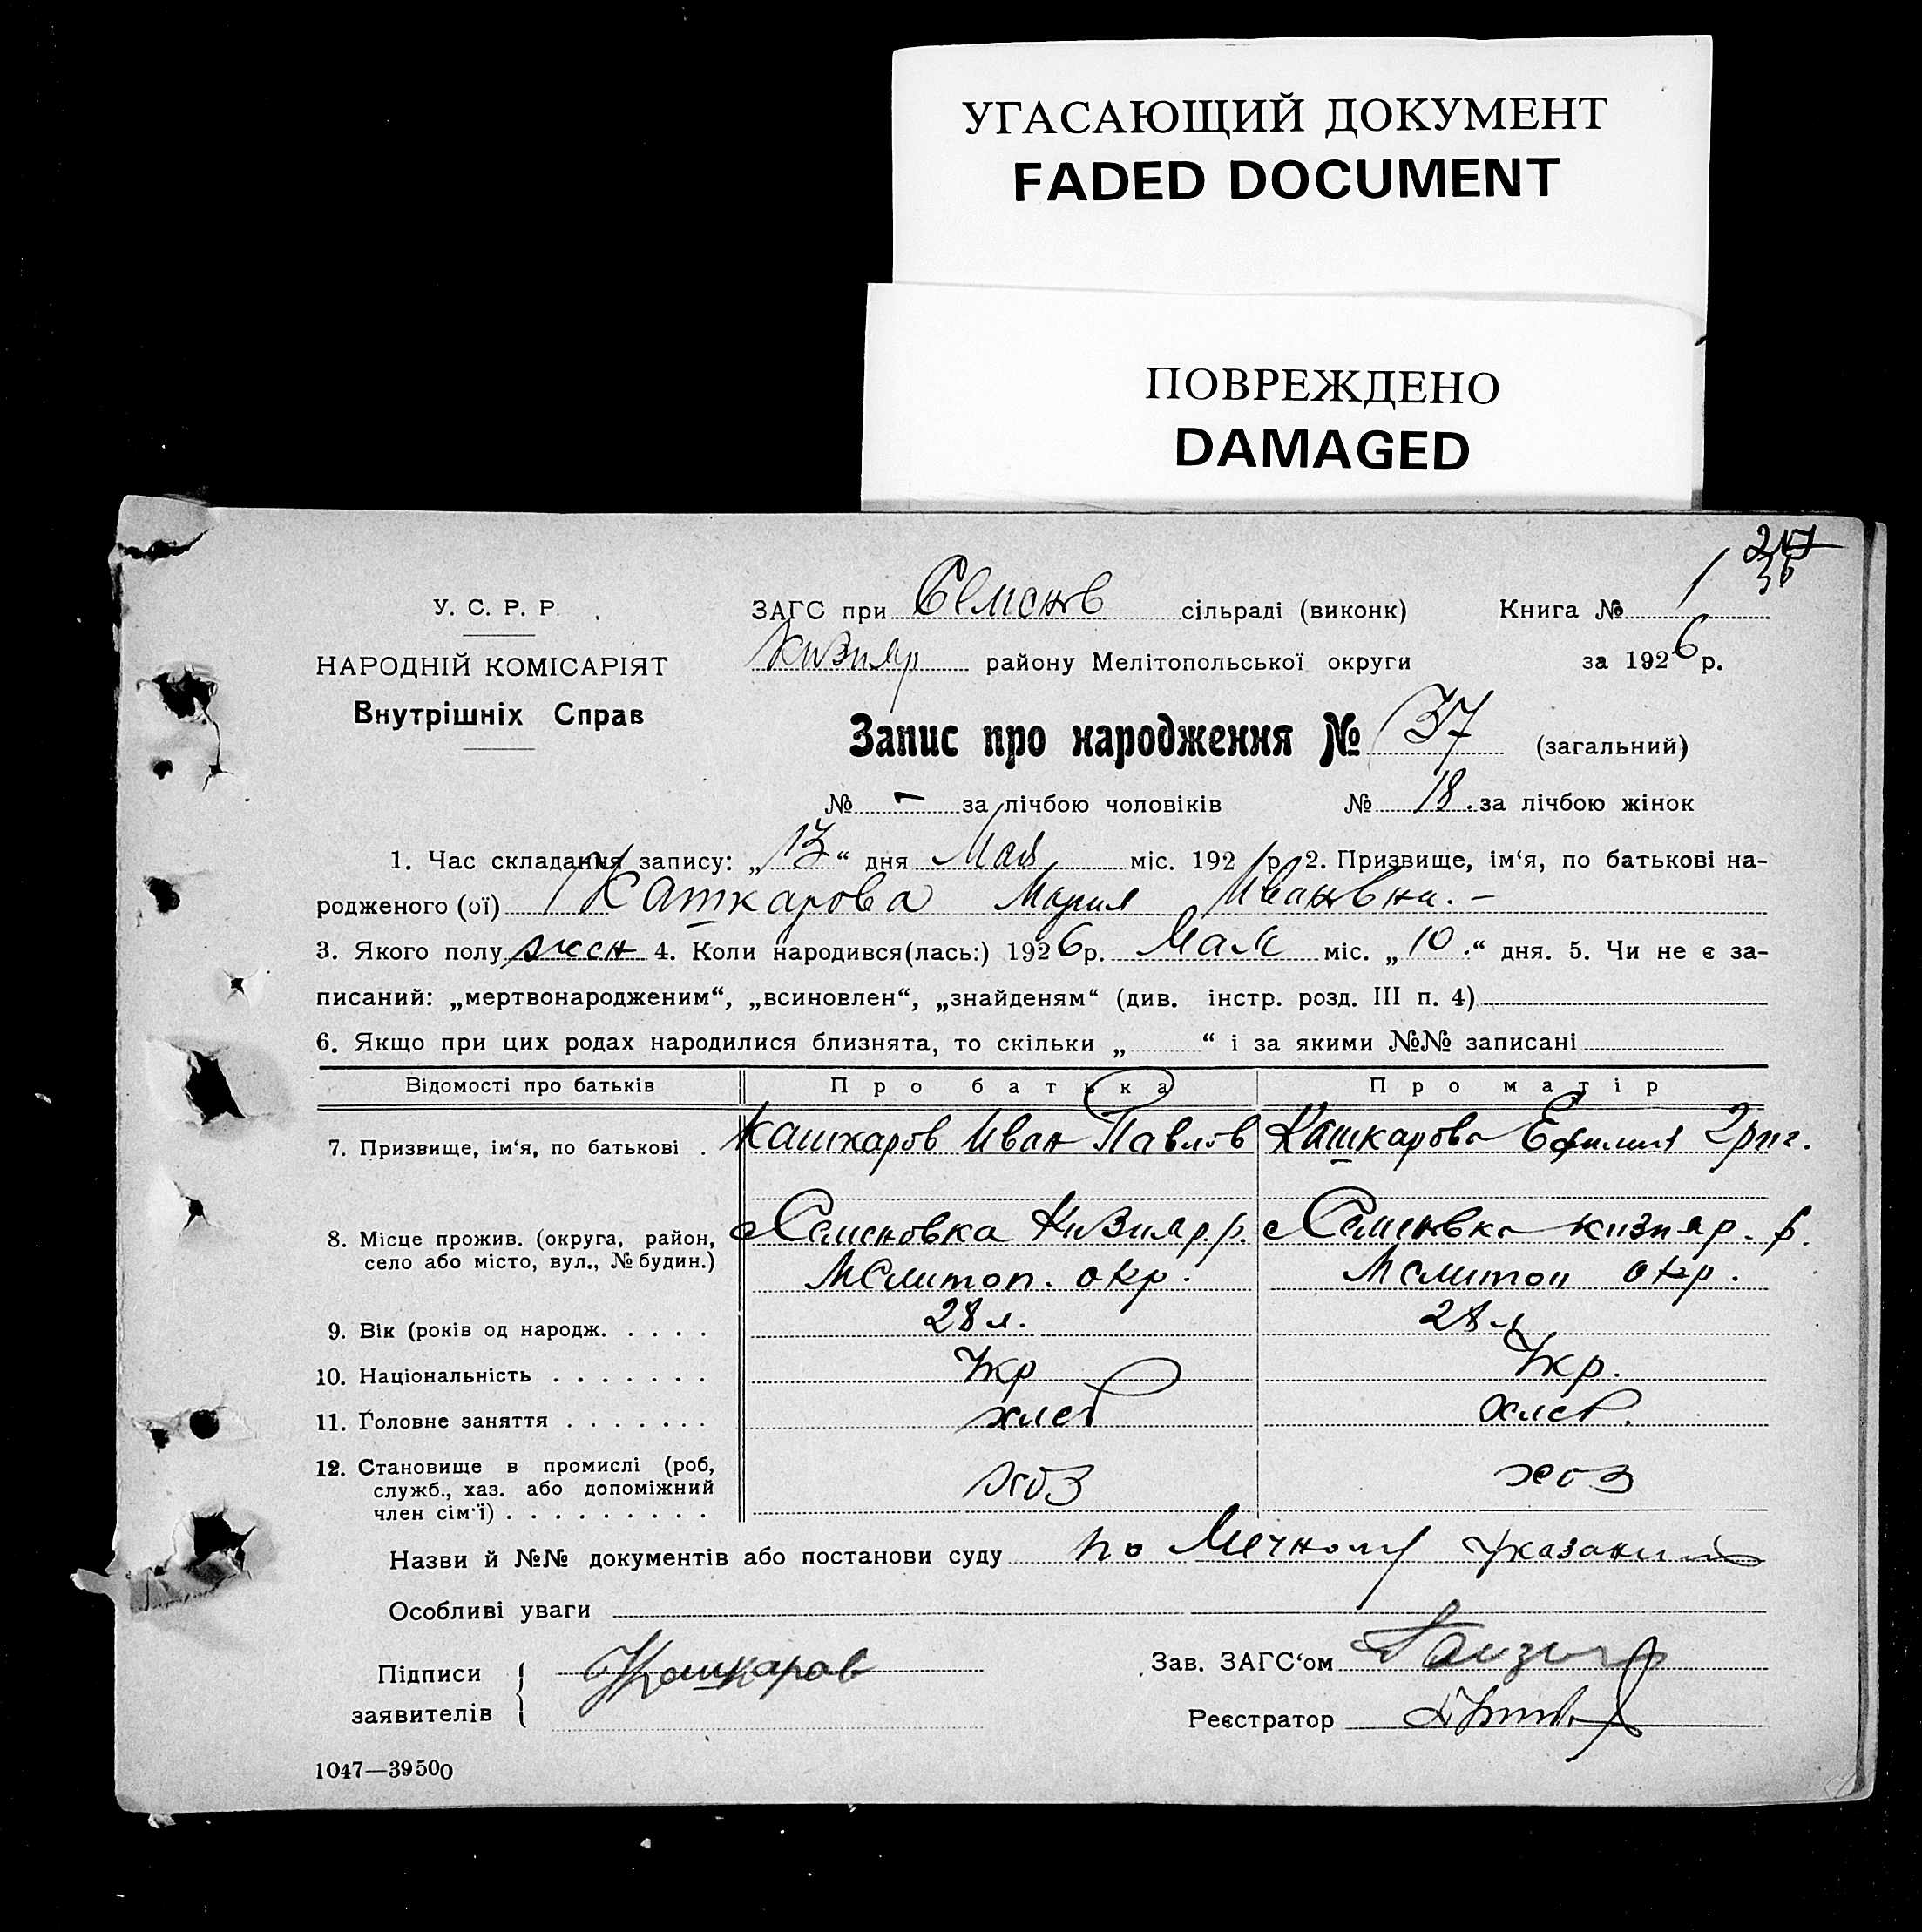 УГАСАЮЩИЙ ДОКУМЕНТ
FADED DOCUMENT
ПОВРЕЖДЕНО
DAMAGED
36
У. С. Р. Р.
НАРОДНІЙ КОМІСАРІЯТ
Внутрішніх Справ
ЗАГС при Семенов сільраді (виконк) Книга № 1
Кизияр району Мелітопольської округи за 1926 р.
Запис про народження № 37 (загальний)
№ - за лічбою чоловіків № 18. за лічбою жінок
1. Час складання запису: „13“ дня Мая міс. 192 р. 2. Призвище, ім‘я, по батькові на-
родженого (ої) Кашкарова Мария Ивановна. -
3. Якого полу жен 4. Коли народився(лась:) 1926 р. Мая міс. „10.“ дня. 5. Чи не є за-
писаний: „мертвонародженим“, „всиновлен“, „знайденям“ (див. інстр. розд. III п. 4)
6. Якщо при цих родах народилися близнята, то скільки „ “ і за якими №№ записані
Відомості про батьків Про батька Про матір
7. Призвище, ім‘я, по батькові . Кашкаров Иван Павлов Кашкарова Ефимия Григ.
8. Місце прожив. (округа, район, Семеновка Кизияр. р. Семеновка кизияр. р.
село або місто, вул., № будин.) Мелитоп. окр. Мелитоп окр.
9. Вік (років од народж. . . . . 28 л. 28 л
10. Національність . . . . . . . Укр Укр.
11. Головне заняття . . . . . . . хлеб хлеб.
12. Становище в промислі (роб, хоз хоз
служб., хаз. або допоміжний
член сім‘ї) . . . . . . . . .
Назви й №№ документів або постанови суду по Личному указанию
Особливі уваги
Підписи Кашкаров Зав. ЗАГС‘ом
заявителів Реєстратор
1047—39500